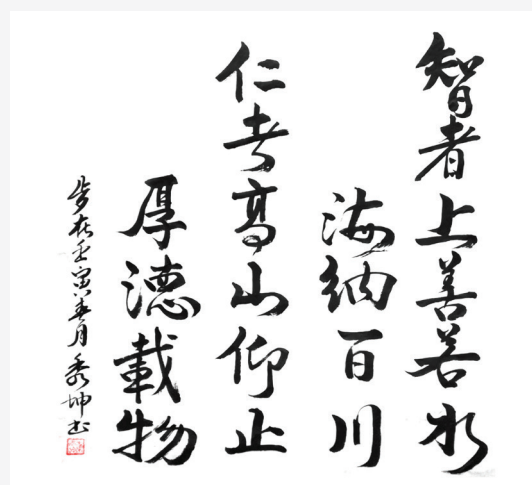 智者上善若水
海纳百川
仁者高山仰止
厚德載物
岁在壬寅春月秀坤书